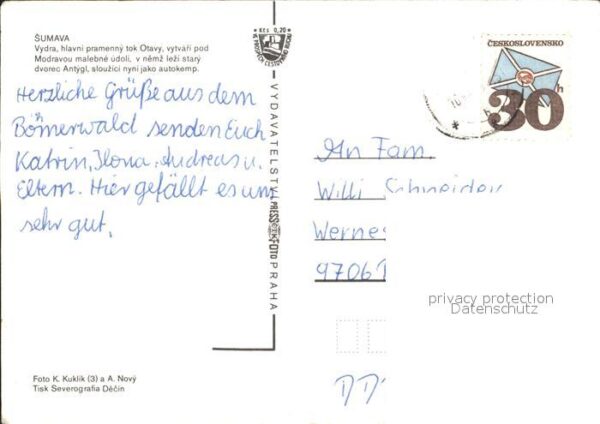 ŠUMAVA
Vydra, hlavní pramenný tok Otavy, vytváří pod
Modravou malebné údolí, v němž leží starý
dvorec Antýgl, sloužící nyní jako autokemp.
Herzliche Grüße aus dem
Bömerwald senden Euch
Katrin, Ilona, Andreas u.
Eltern. Hier gefällt es uns
sehr gut.
Foto K. Kuklík (3) a A. Nový
Tisk Severografia Děčín
Kčs 0,20
VYDAVATELSTVÍ PRESSFOTO PRAHA
ČESKOSLOVENSKO
30h
An Fam.
Willi Schneider
Wernes
9706
privacy protection
Datenschutz
DD